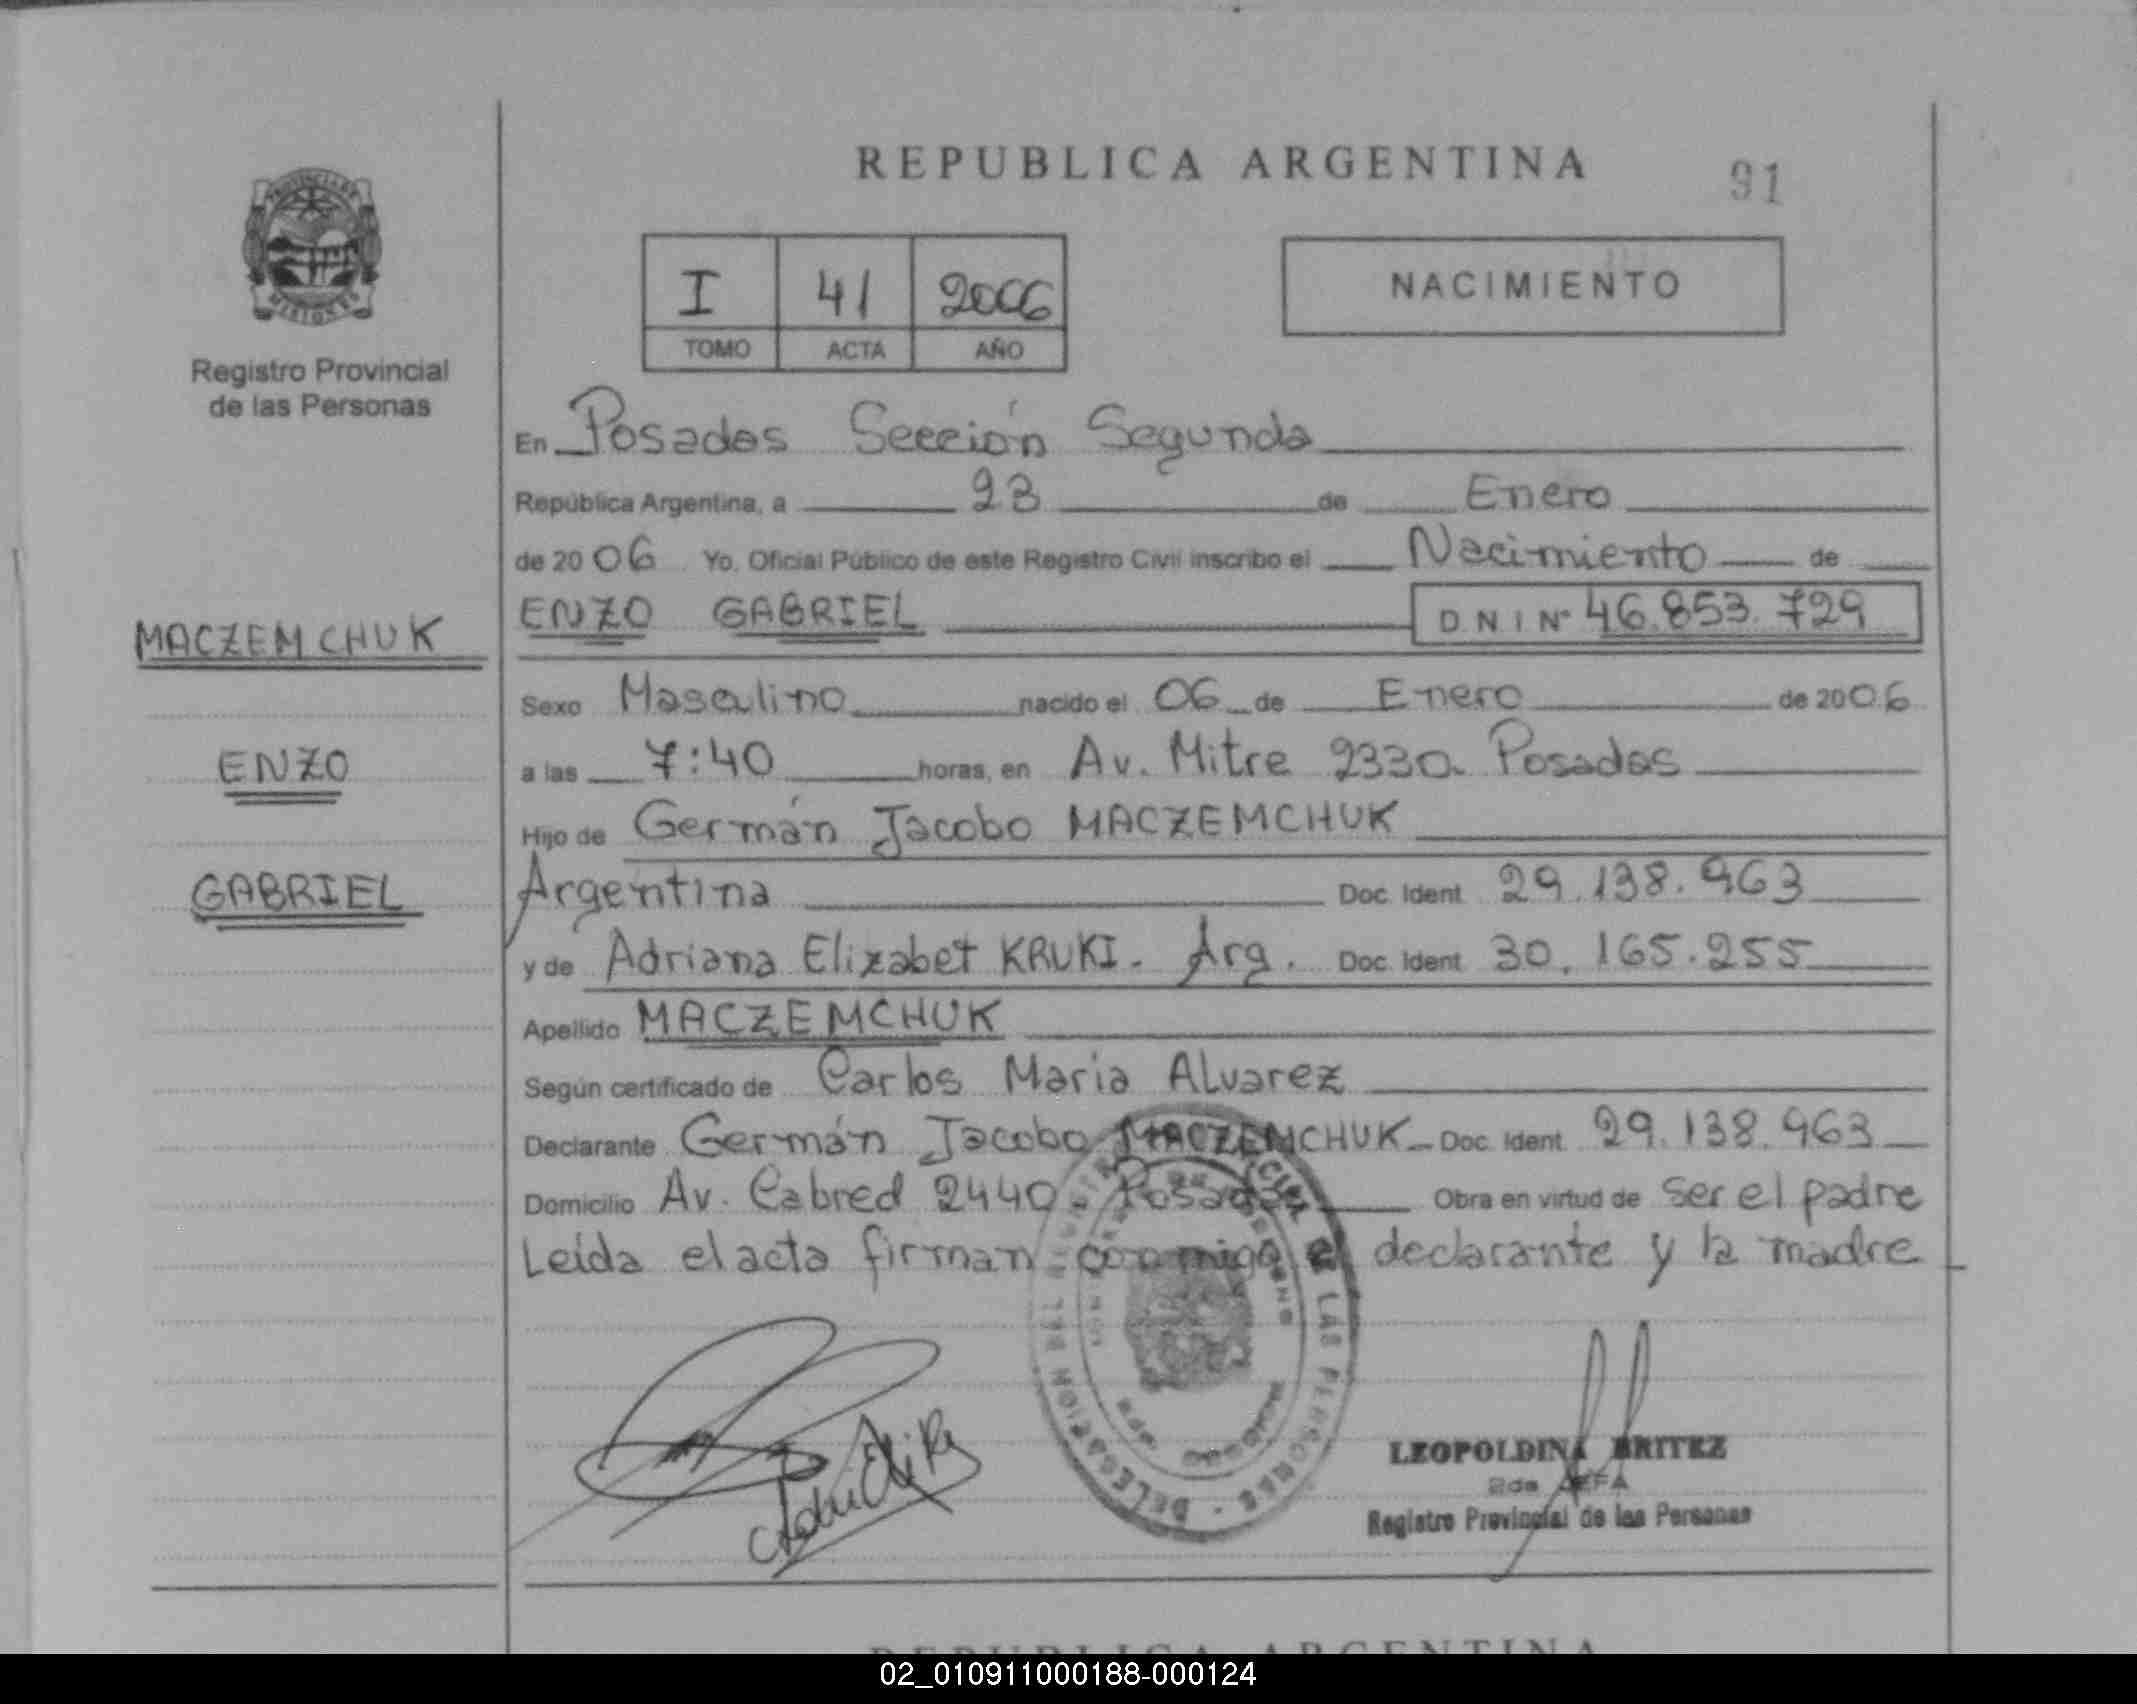 REPUBLICA ARGENTINA
91
PROVINCIA DE
MISIONES
Registro Provincial
de las Personas
I 41 2006
TOMO ACTA AÑO
NACIMIENTO
En Posadas Sección Segunda
República Argentina, a 23 de Enero
de 2006 Yo, Oficial Público de este Registro Civil inscribo el Nacimiento de
ENZO GABRIEL D.N.I Nº 46.853.729
MACZEMCHUK
Sexo Masculino nacido el 06 de Enero de 2006
ENZO
a las 7:40 horas, en Av. Mitre 2330 Posadas
Hijo de Germán Jacobo MACZEMCHUK
GABRIEL
Argentina Doc. Ident. 29.138.963
y de Adriana Elizabet KRUKI. Arg. Doc. Ident. 30.165.255
Apellido MACZEMCHUK
Según certificado de Carlos Maria Alvarez
Declarante Germán Jacobo MACZEMCHUK Doc. Ident. 29.138.963
Domicilio Av. Cabred 2440 Posadas Obra en virtud de ser el padre
Leída el acta firman conmigo el declarante y la madre
LEOPOLDINA BRITEZ
2da JEFA
Registro Provincial de las Personas
REPUBLICA ARGENTINA
02_010911000188-000124